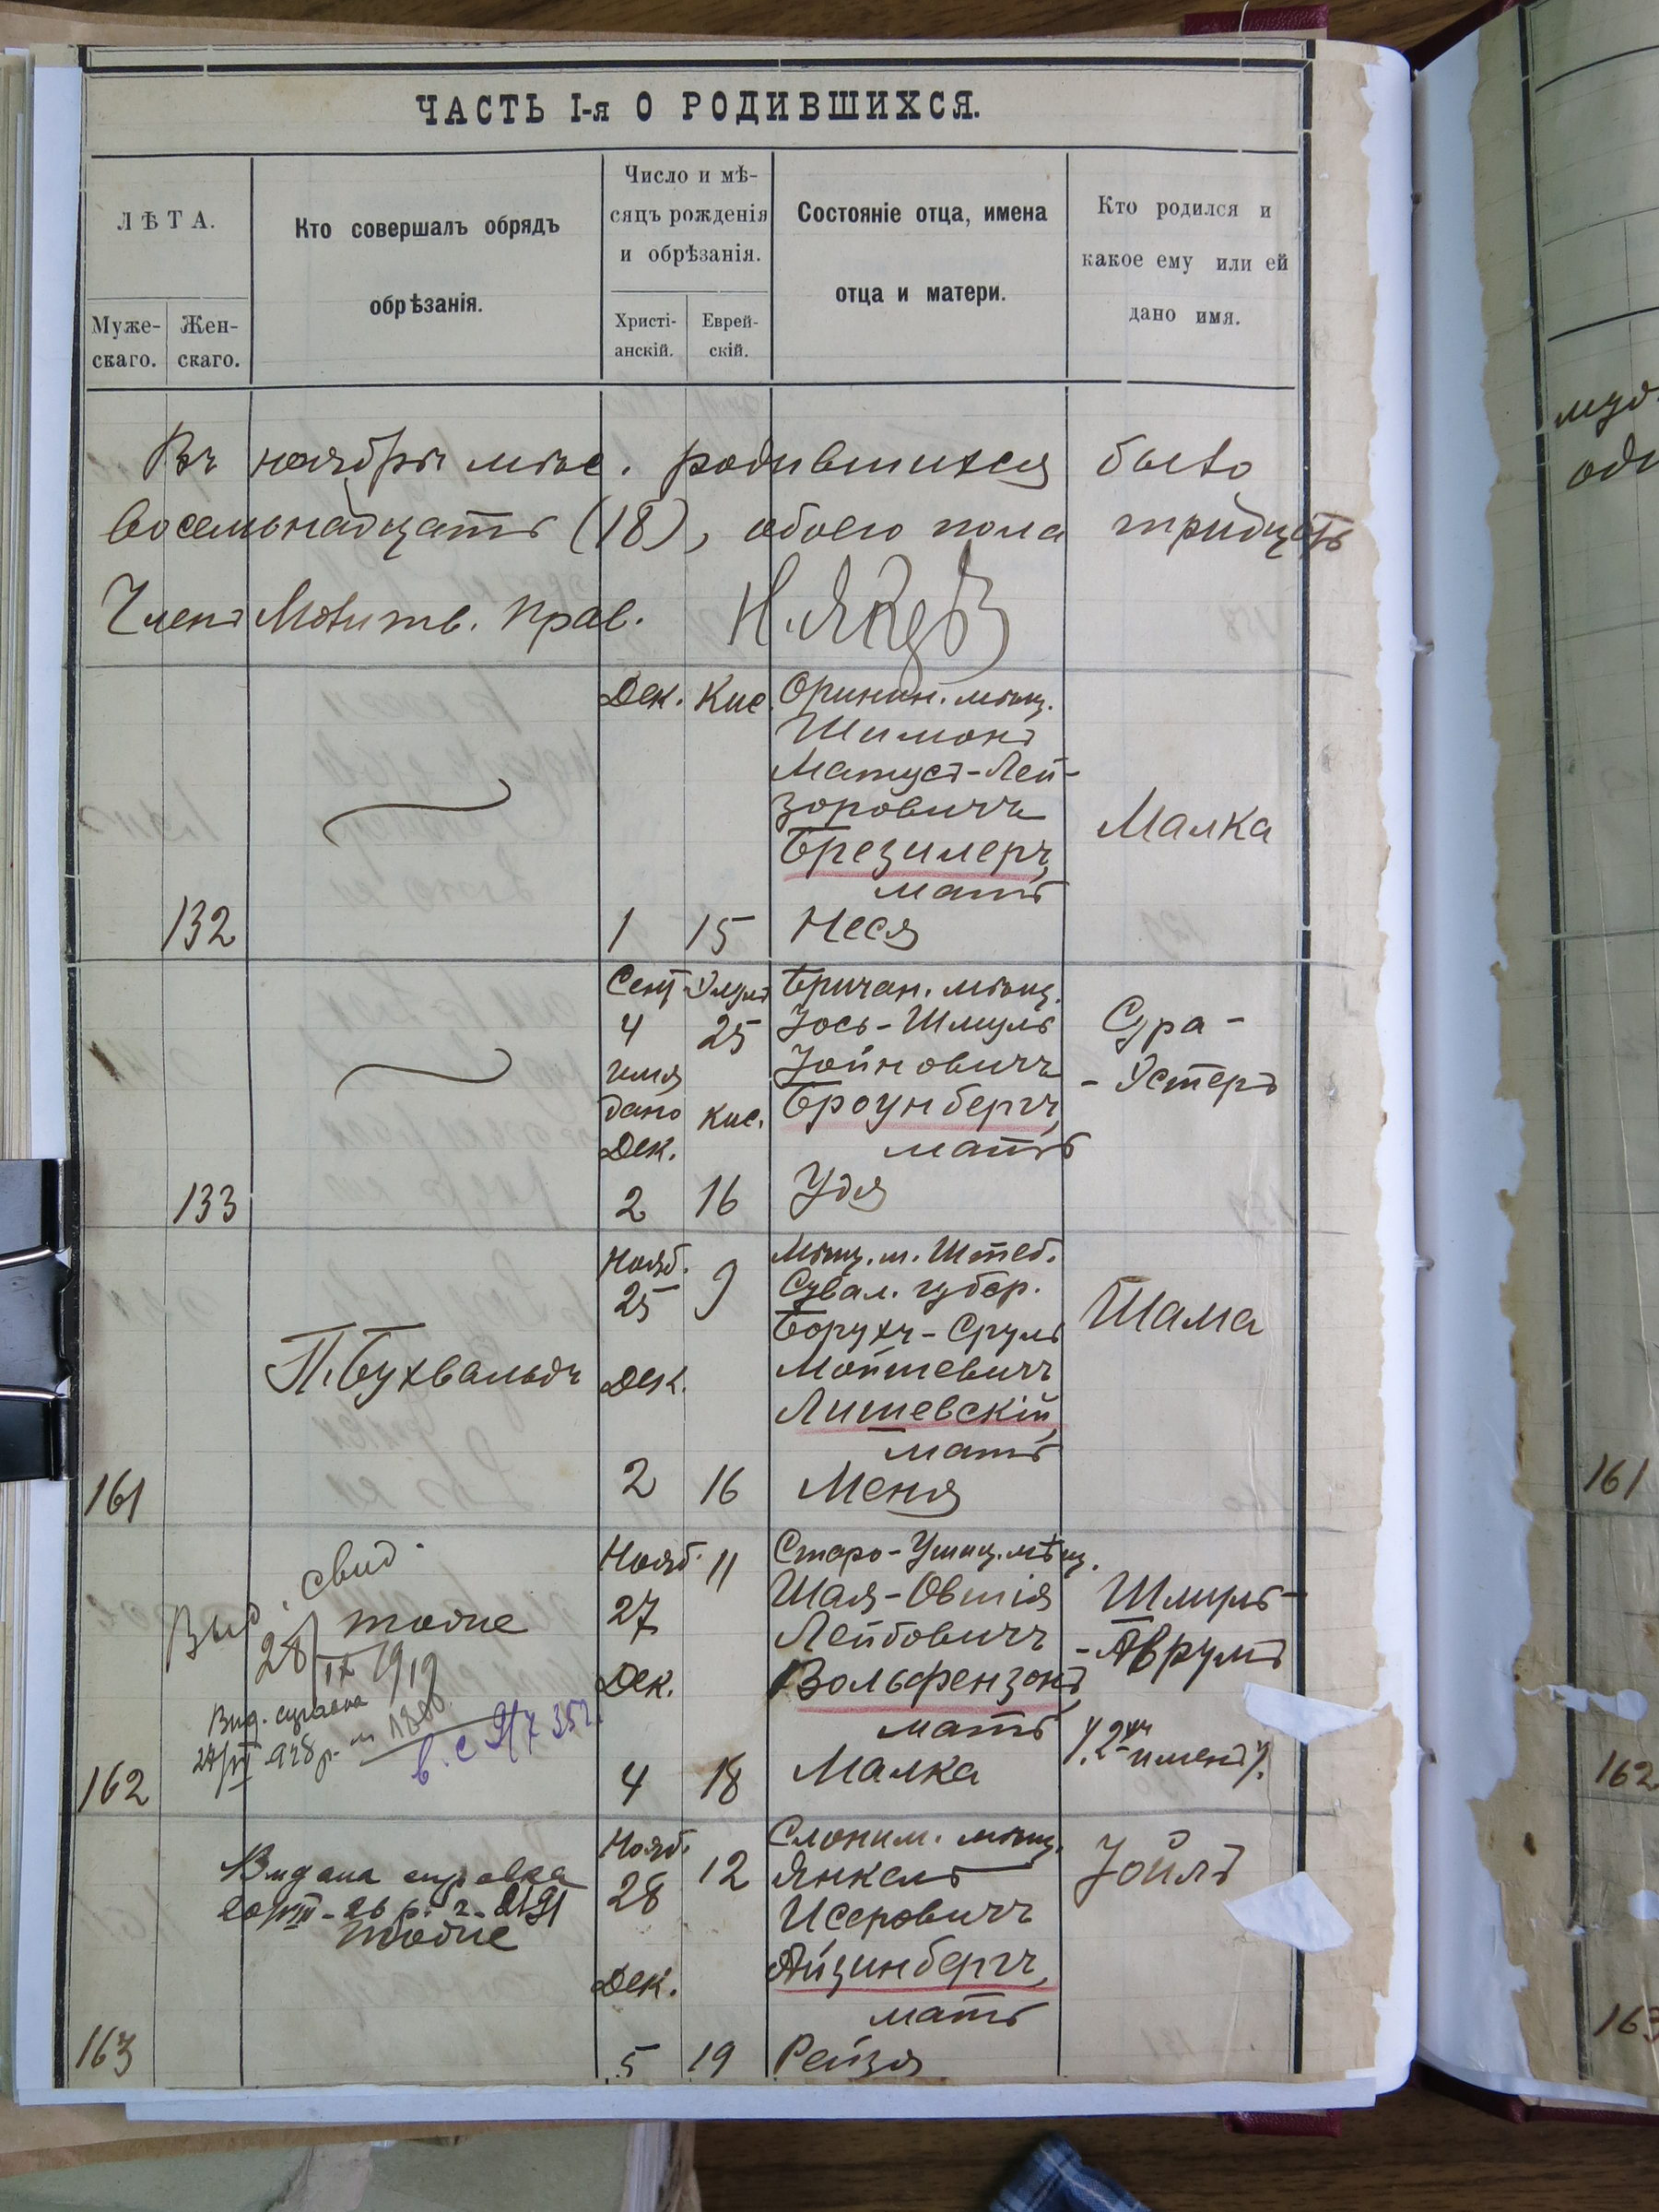 ЧАСТЬ I-я О РОДИВШИХСЯ.
ЛѢТА.
Муже-
скаго.
Жен-
скаго.
Кто совершалъ обрядъ
обрѣзанія.
Число и мѣ-
сяцъ рожденія
и обрѣзанія.
Христі-
анскій.
Еврей-
скій.
Состояніе отца, имена
отца и матери.
Кто родился и
какое ему или ей
дано имя.
Въ ноябрѣ мѣс. родившихся было
восемьнадцать (18), обоего пола тридцать
Членъ Молитв. Прав.
132
Дек. Кис.
1 15
Оринин. мѣщ.
Шимонъ
Матусъ-Лей-
зоровичъ
Брезилеръ,
мать
Неся
Малка
133
Сент. Элулъ
4 25
имя
дано Кис.
Дек.
2 16
Бричан. мѣщ.
Іось-Шмуль
Іойновичъ
Броунбергъ,
мать
Удя
Сура-
-Эстеръ
161
П. Бухвальдъ
Нояб.
25 9
Дек.
2 16
Мѣщ. м. Штеб.
Сувал. губер.
Борухъ-Сруль
Мошкевичъ
Лишевскій,
мать
Меня
Шама
162
Выд. свид.
28/IX 1919
Нояб. 11
27
Дек.
4 18
Старо-Ушиц. мѣщ.
Шая-Овшія
Лейбовичъ
Вольфензонъ,
мать
Малка
Шмуль-
-Аврумъ
/.2хъ именъ/.
163
Видана справка
Нояб.
28 12
Дек.
5 19
Слоним. мѣщ.
Янкель
Исеровичъ
Айзинбергъ,
мать
Рейзя
Іойлъ
161
162
163